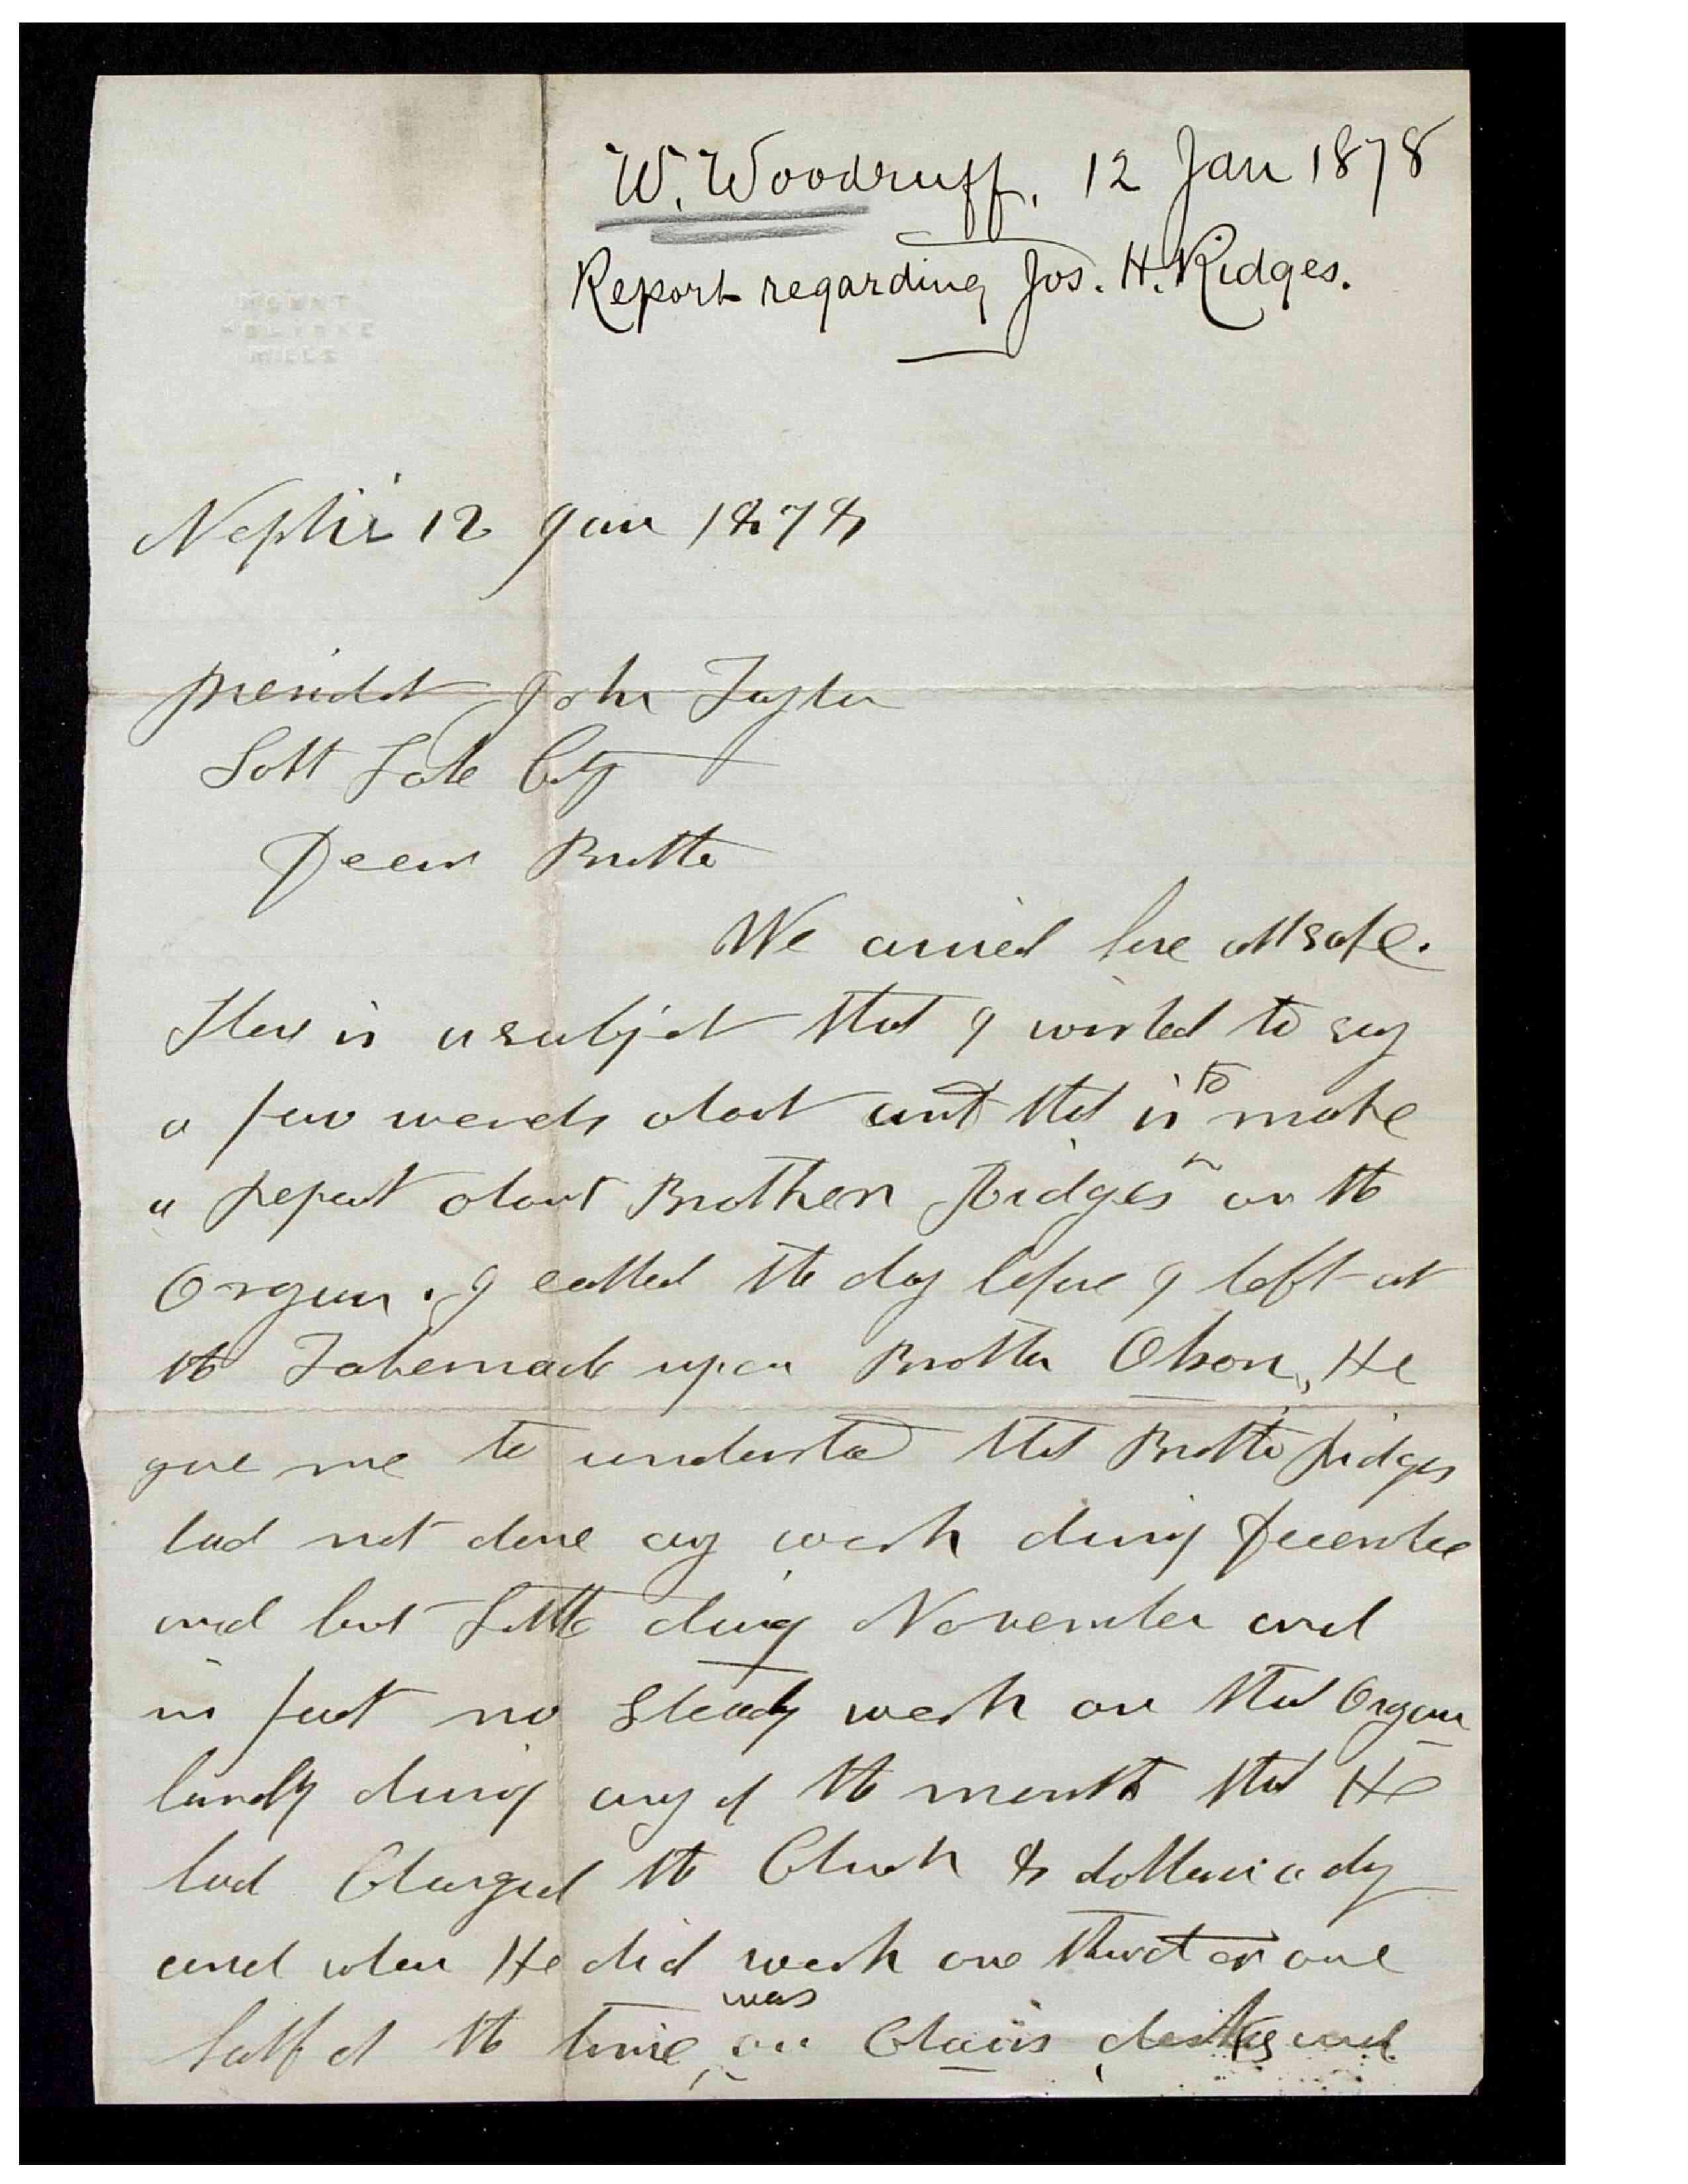 W. Woodruff. 12 Jan 1878
Report regarding Jos. H. Ridges.
MOUNT
HOLYOKE
MILLS
Nephi 12 Jan 1878
President John Taylor
Salt Lake City
Dear Brother
We arived here all safe.
There is a subject that I wished to say
a few words about and that is to make
a report about Brother Ridges on the
Organ. I called the day before I left at
the Tabernacle upon Brother Olson, He
gave me to understand that Brother Ridges
had not done any work during December
and but little during November and
in fact no Steady work on that Organ
hardly during any of the month that He
had Charged the Church 8 dollars a day
and when He did work one third or one
half of the time was on Chairs desks and